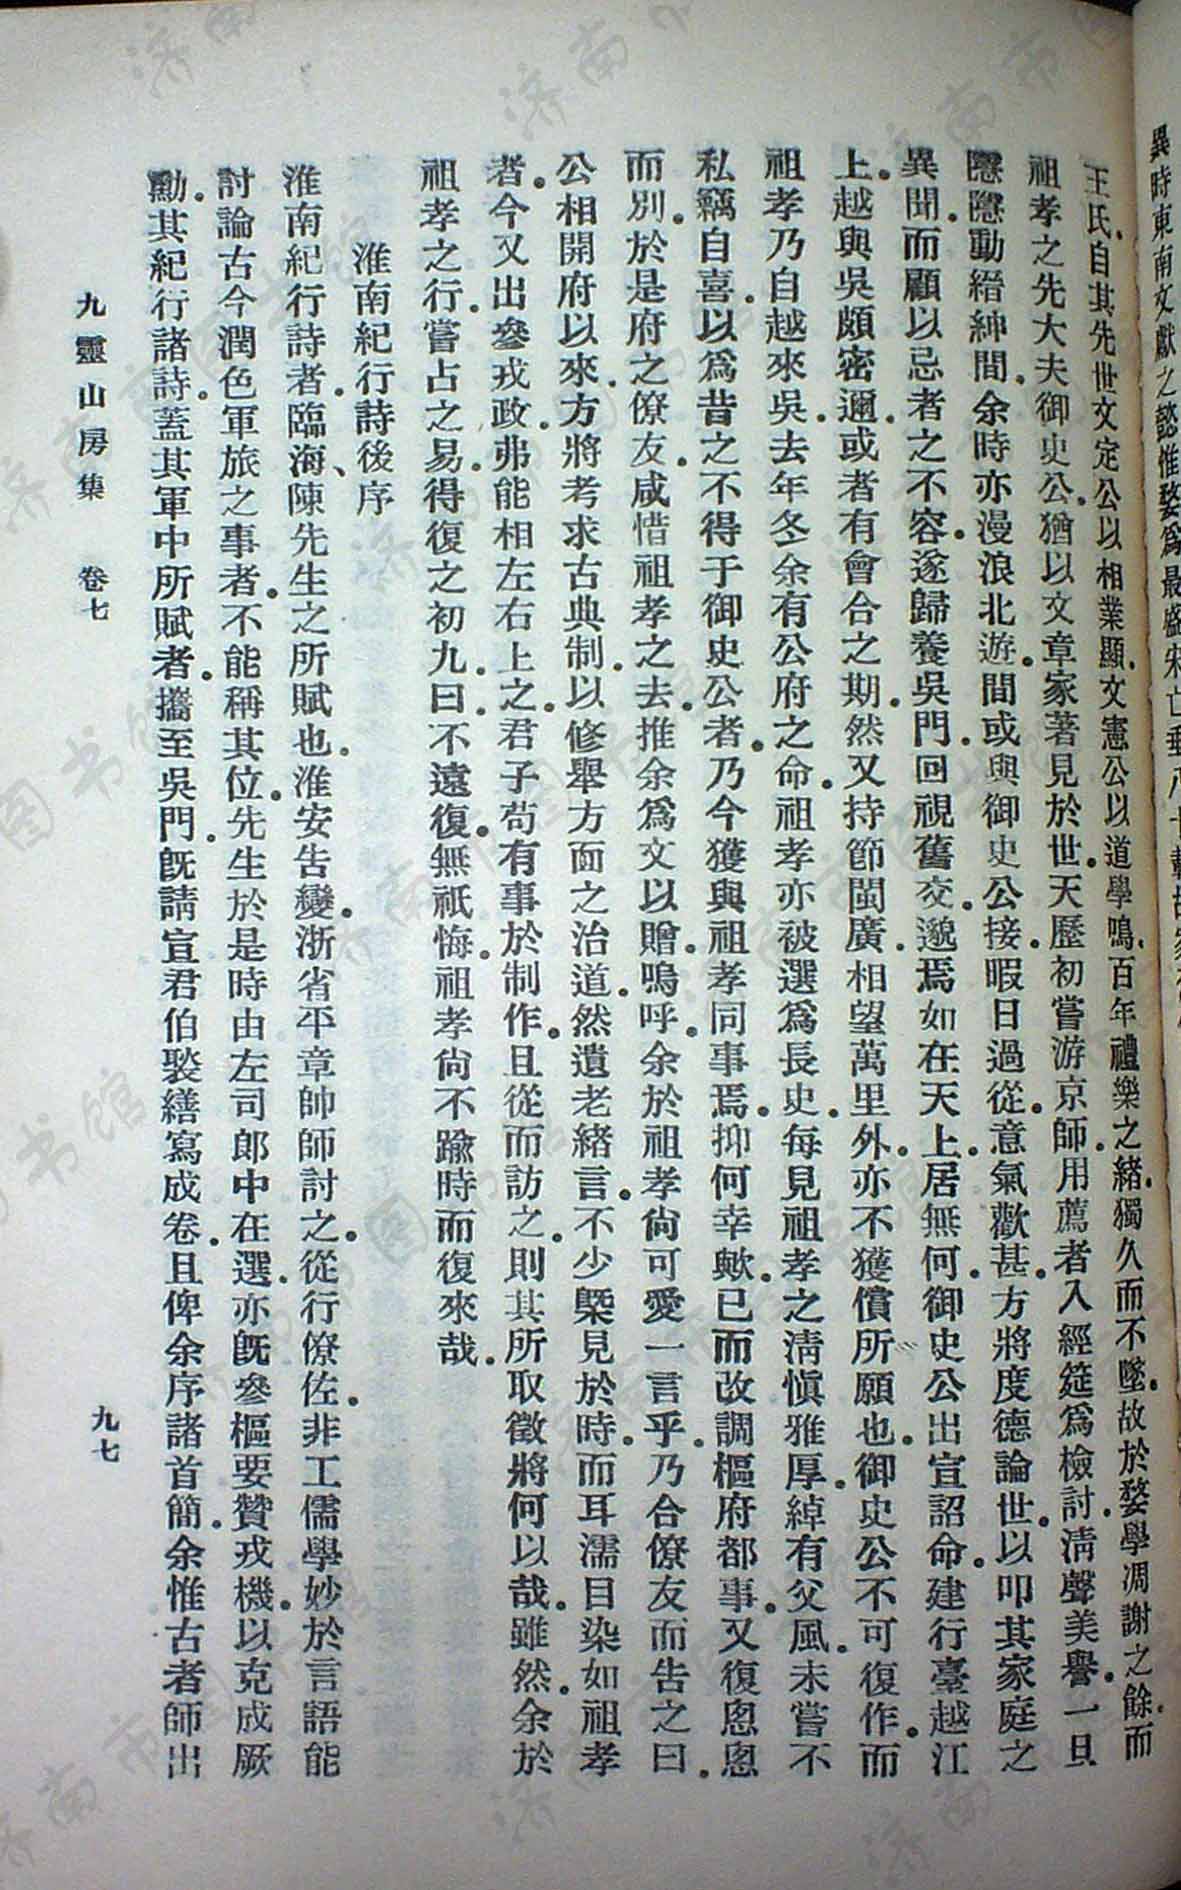 異時東南文獻之懿惟婺爲最盛宋亡垂八十載故家
王氏自其先世文定公以相業顯文憲公以道學鳴百年禮樂之緒獨久而不墜故於婺學凋謝之餘而
祖孝之先大夫御史公猶以文章家著見於世天歷初嘗游京師用薦者入經筵爲檢討清聲美譽一旦
隱隱動縉紳間余時亦漫浪北遊間或與御史公接暇日過從意氣歡甚方將度德論世以叩其家庭之
異聞而顧以忌者之不容遂歸養吳門回視舊交邈焉如在天上居無何御史公出宣詔命建行臺越江
上越與吳頗密邇或者有會合之期然又持節閩廣相望萬里外亦不獲償所願也御史公不可復作而
祖孝乃自越來吳去年冬余有公府之命祖孝亦被選爲長史每見祖孝之清愼雅厚綽有父風未嘗不
私竊自喜以爲昔之不得于御史公者乃今獲與祖孝同事焉抑何幸歟已而改調樞府都事又復悤悤
而別於是府之僚友咸惜祖孝之去推余爲文以贈嗚呼余於祖孝尙可愛一言乎乃合僚友而告之曰
公相開府以來方將考求古典制以修舉方面之治道然遺老緒言不少槩見於時而耳濡目染如祖孝
者今又出參戎政弗能相左右上之君子苟有事於制作且從而訪之則其所取徵將何以哉雖然余於
祖孝之行嘗占之易得復之初九曰不遠復無祇悔祖孝尙不踰時而復來哉
淮南紀行詩後序
淮南紀行詩者臨海陳先生之所賦也淮安告變浙省平章帥師討之從行僚佐非工儒學妙於言語能
討論古今潤色軍旅之事者不能稱其位先生於是時由左司郎中在選亦旣參樞要贊戎機以克成厥
勳其紀行諸詩蓋其軍中所賦者攜至吳門旣請宣君伯褧繕寫成卷且俾余序諸首簡余惟古者師出
九靈山房集 卷七
九七
濟南市图书馆